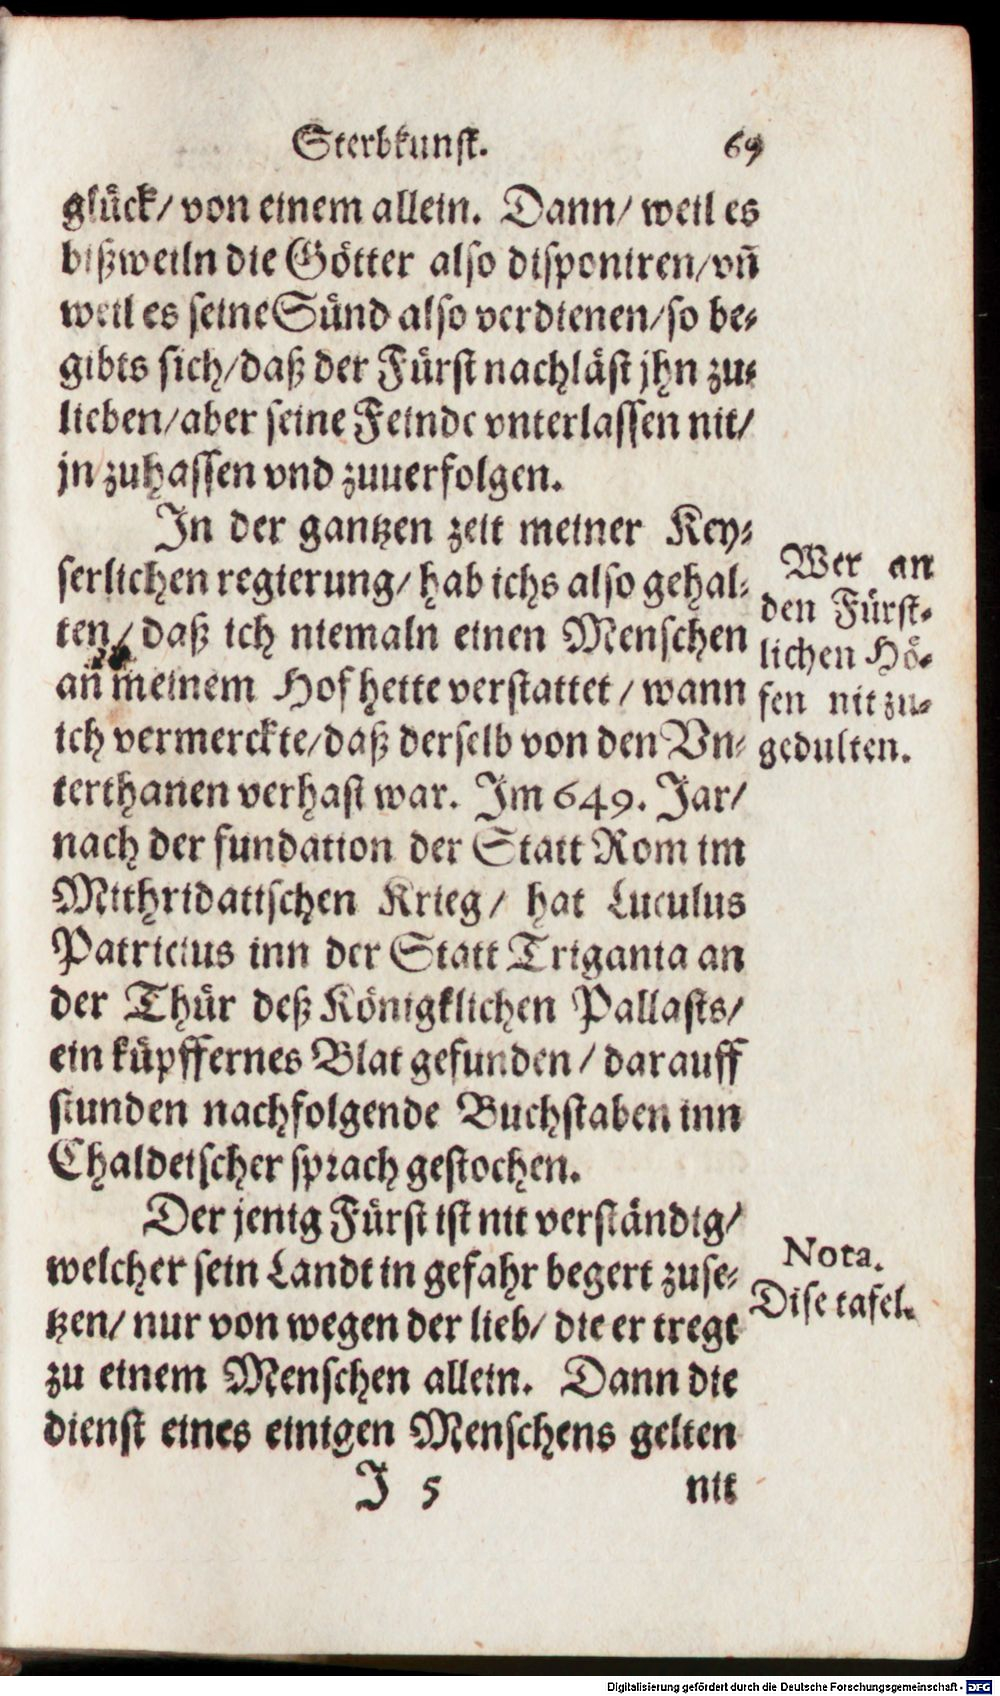 Sterbkunst. 69
glück/ von einem allein. Dann/ weil es
bißweiln die Götter also disponiren/ vn̄
weil es seine Sünd also verdienen/ so be⸗
gibts sich/ daß der Fürst nachläst jhn zu⸗
lieben/ aber seine Feinde vnterlassen nit/
jn zuhassen vnd zuuerfolgen.
In der gantzen zeit meiner Key⸗
serlichen regierung/ hab ichs also gehal⸗
ten/ daß ich niemaln einen Menschen
an meinem Hof hette verstattet/ wann
ich vermerckte/ daß derselb von den Vn⸗
terthanen verhast war. Im 649. Jar/
nach der fundation der Statt Rom im
Mithridatischen Krieg/ hat Luculus
Patricius inn der Statt Trigania an
der Thür deß Königklichen Pallasts/
ein küpffernes Blat gefunden/ darauff
stunden nachfolgende Buchstaben inn
Chaldeischer sprach gestochen.
Der jenig Fürst ist nit verständig/
welcher sein Landt in gefahr begert zuse⸗
tzen/ nur von wegen der lieb/ die er tregt
zu einem Menschen allein. Dann die
dienst eines einigen Menschens gelten
J 5 nit
Wer an
den Fürst⸗
lichen Hö⸗
fen nit zu⸗
gedulten.
Nota.
Dise tafel.
Digitalisierung gefördert durch die Deutsche Forschungsgemeinschaft - DFG